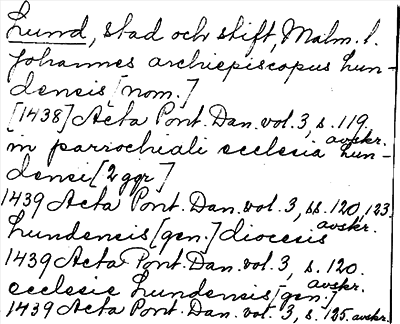 Lund, stad och stift, Malm. l.
Johannes archiepiscopus Lun-
densis [nom.]
[1438] Acta Pont. Dan. vol. 3, s. 119 avskr.
in parrochiali ecclesia Lun-
densi [2 ggr]
1439 Acta Pont. Dan. vol. 3, ss. 120, 123 avskr.
Lundensis [gen.] diocesis
1439 Acta Pont. Dan. vol. 3, s. 120. avskr.
ecclesie Lundensis [gen.]
1439 Acta Pont. Dan. vol. 3, s. 125 avskr.